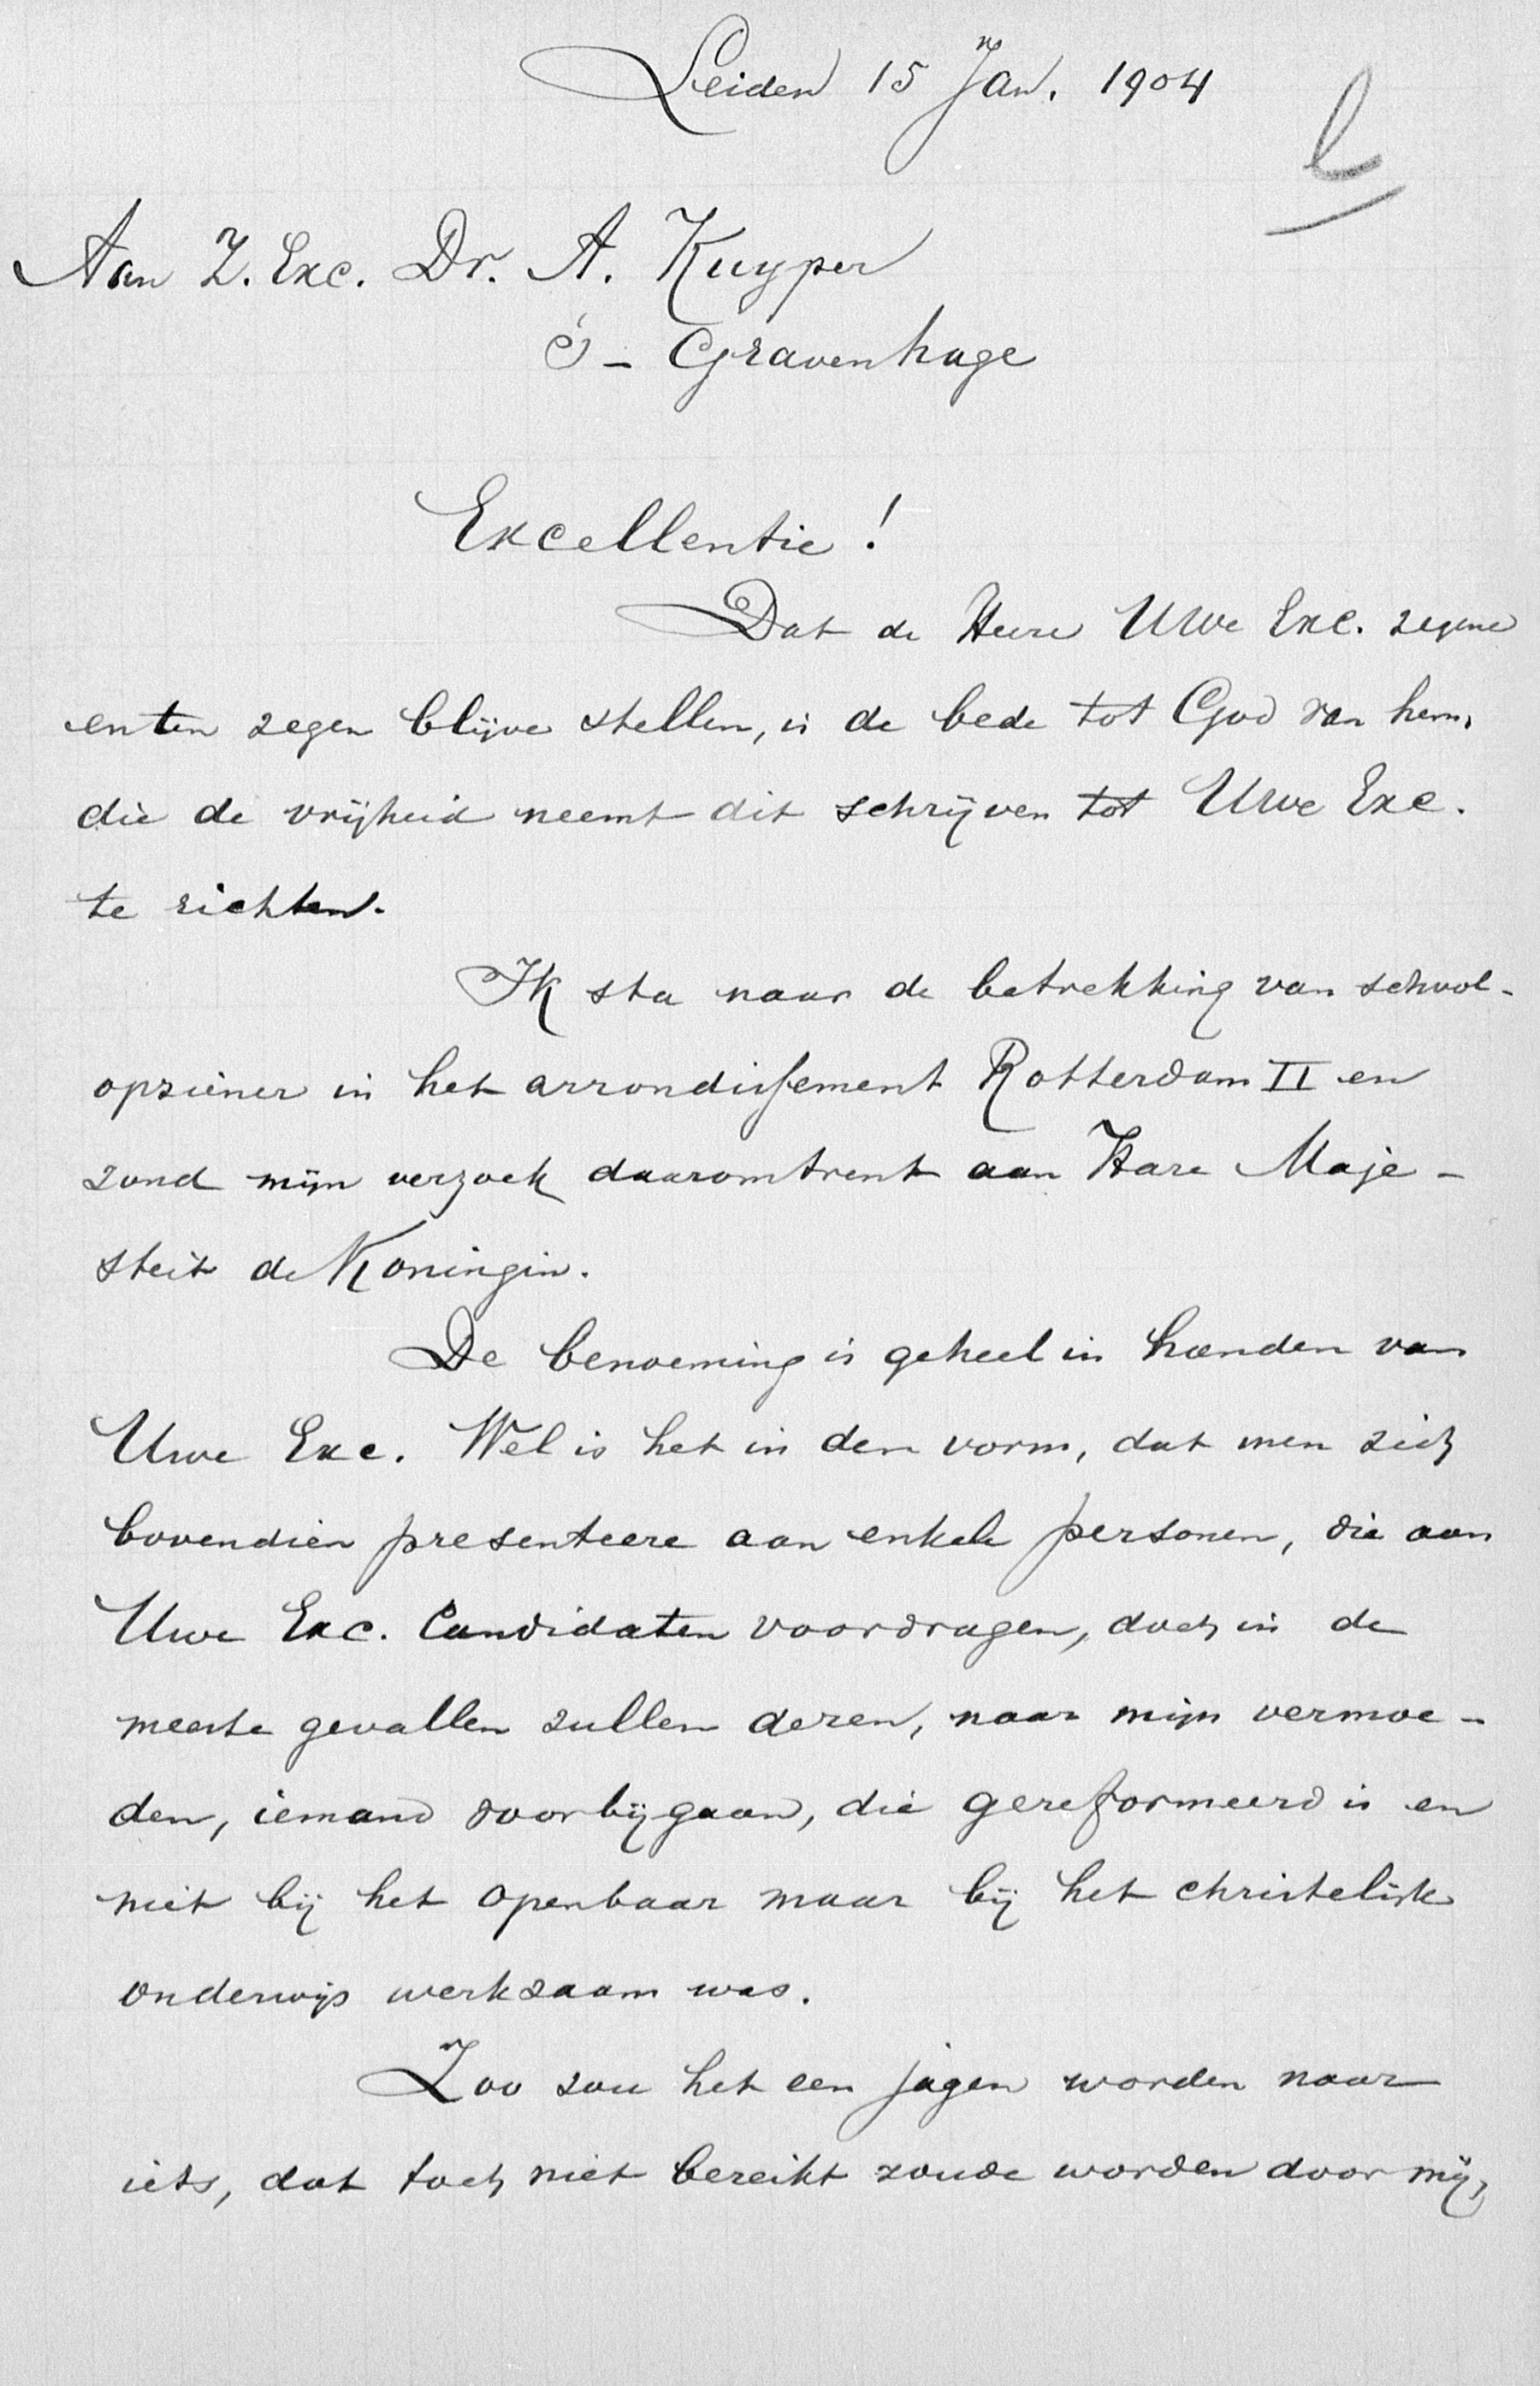 Leiden 15 Jan. 1904
l
Aan Z. Exc. Dr. A. Kuyper
's-Gravenhage
Excellentie!
Dat de Heere Uwe Exc. zegene
en ten zegen blijve stellen, is de bede tot God van hem,
die de vrijheid neemt dit schrijven tot Uwe Exc.
te richten.
Ik sta naar de betrekking van school-
opziener in het arrondissement Rotterdam II en
zond mijn verzoek daaromtrent aan Hare Maje-
steit de Koningin.
De benoeming is geheel in handen van
Uwe Exc. Wel is het in den vorm, dat men zich
bovendien presenteere aan enkele personen, die aan
Uwe Exc. Candidaten voordragen, doch in de
meeste gevallen zullen dezen, naar mijn vermoe-
den, iemand voorbijgaan, die gereformeerd is en
niet bij het openbaar maar bij het christelijk
onderwijs werkzaam was.
Zoo zou het een jagen worden naar
iets, dat toch niet bereikt zoude worden door mij,